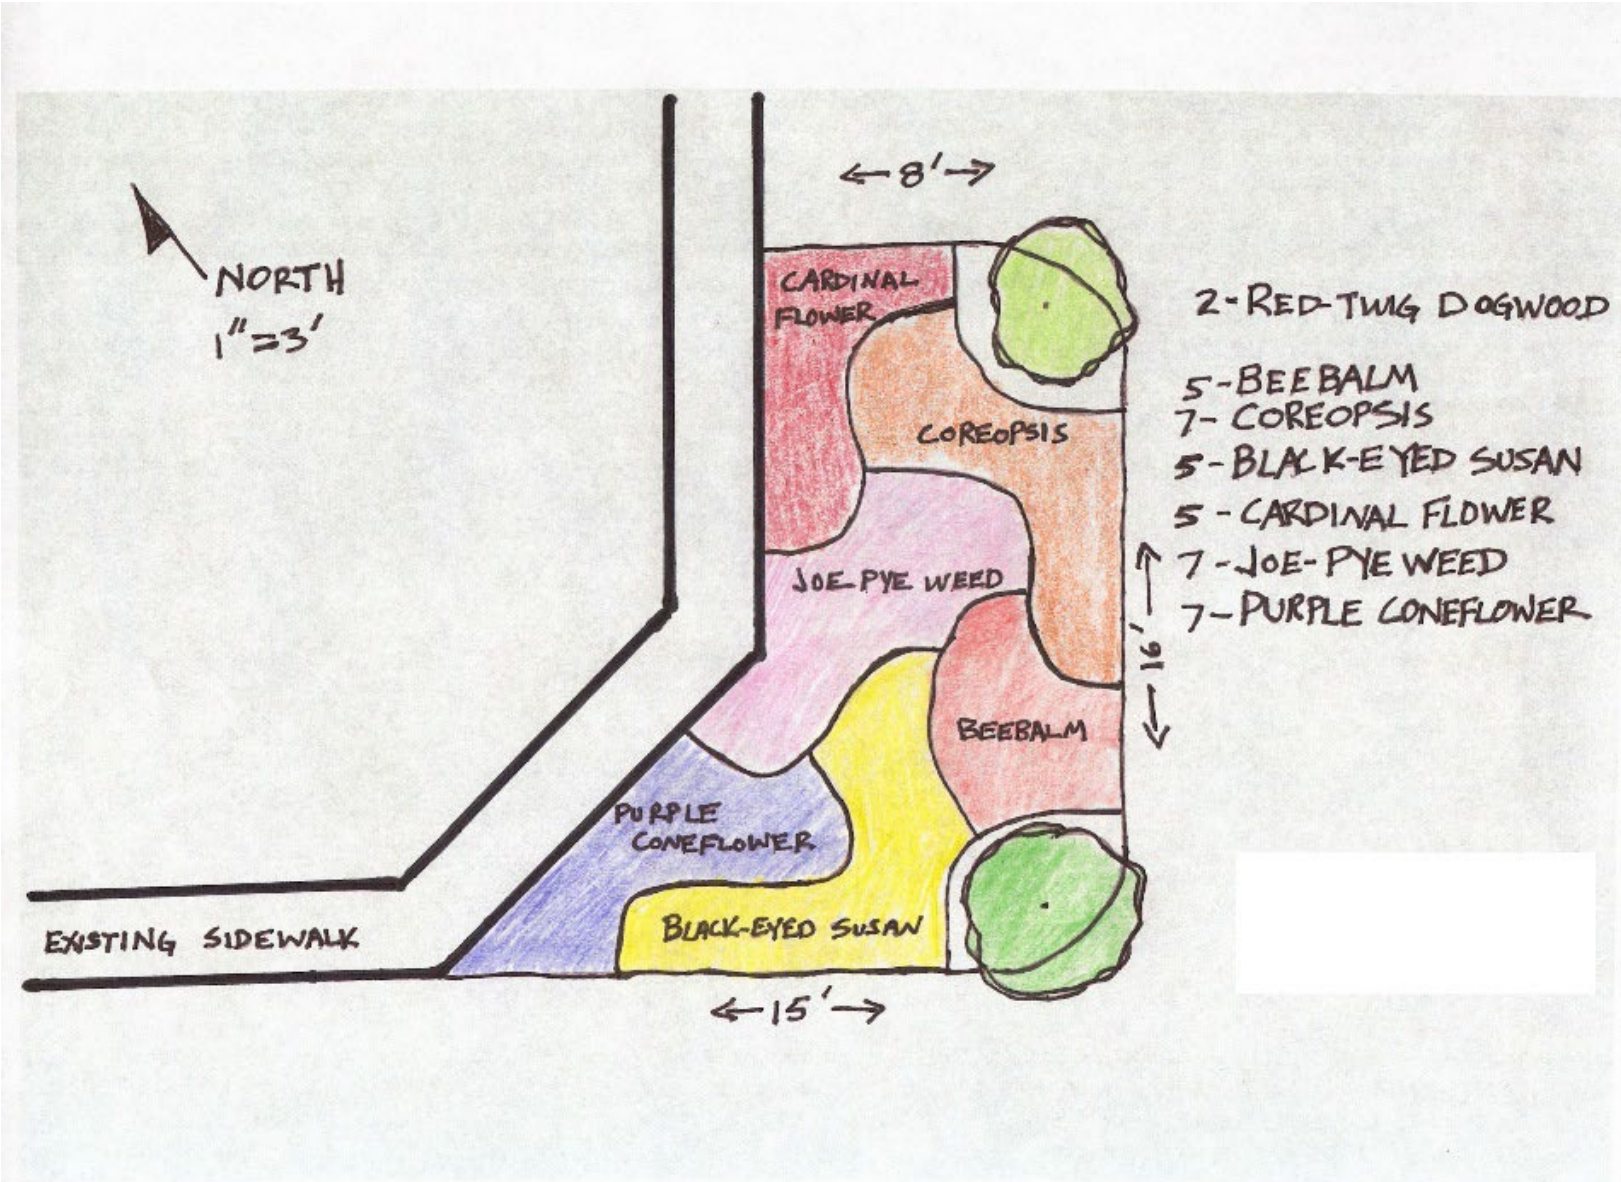 8'
NORTH
1"=3'
CARDINAL
FLOWER
COREOPSIS
JOE-PYE WEED
BEEBALM
PURPLE
CONEFLOWER
BLACK-EYED SUSAN
EXISTING SIDEWALK
15'
16'
2-RED-TWIG DOGWOOD
5-BEEBALM
7-COREOPSIS
5-BLACK-EYED SUSAN
5-CARDINAL FLOWER
7-JOE-PYE WEED
7-PURPLE CONEFLOWER